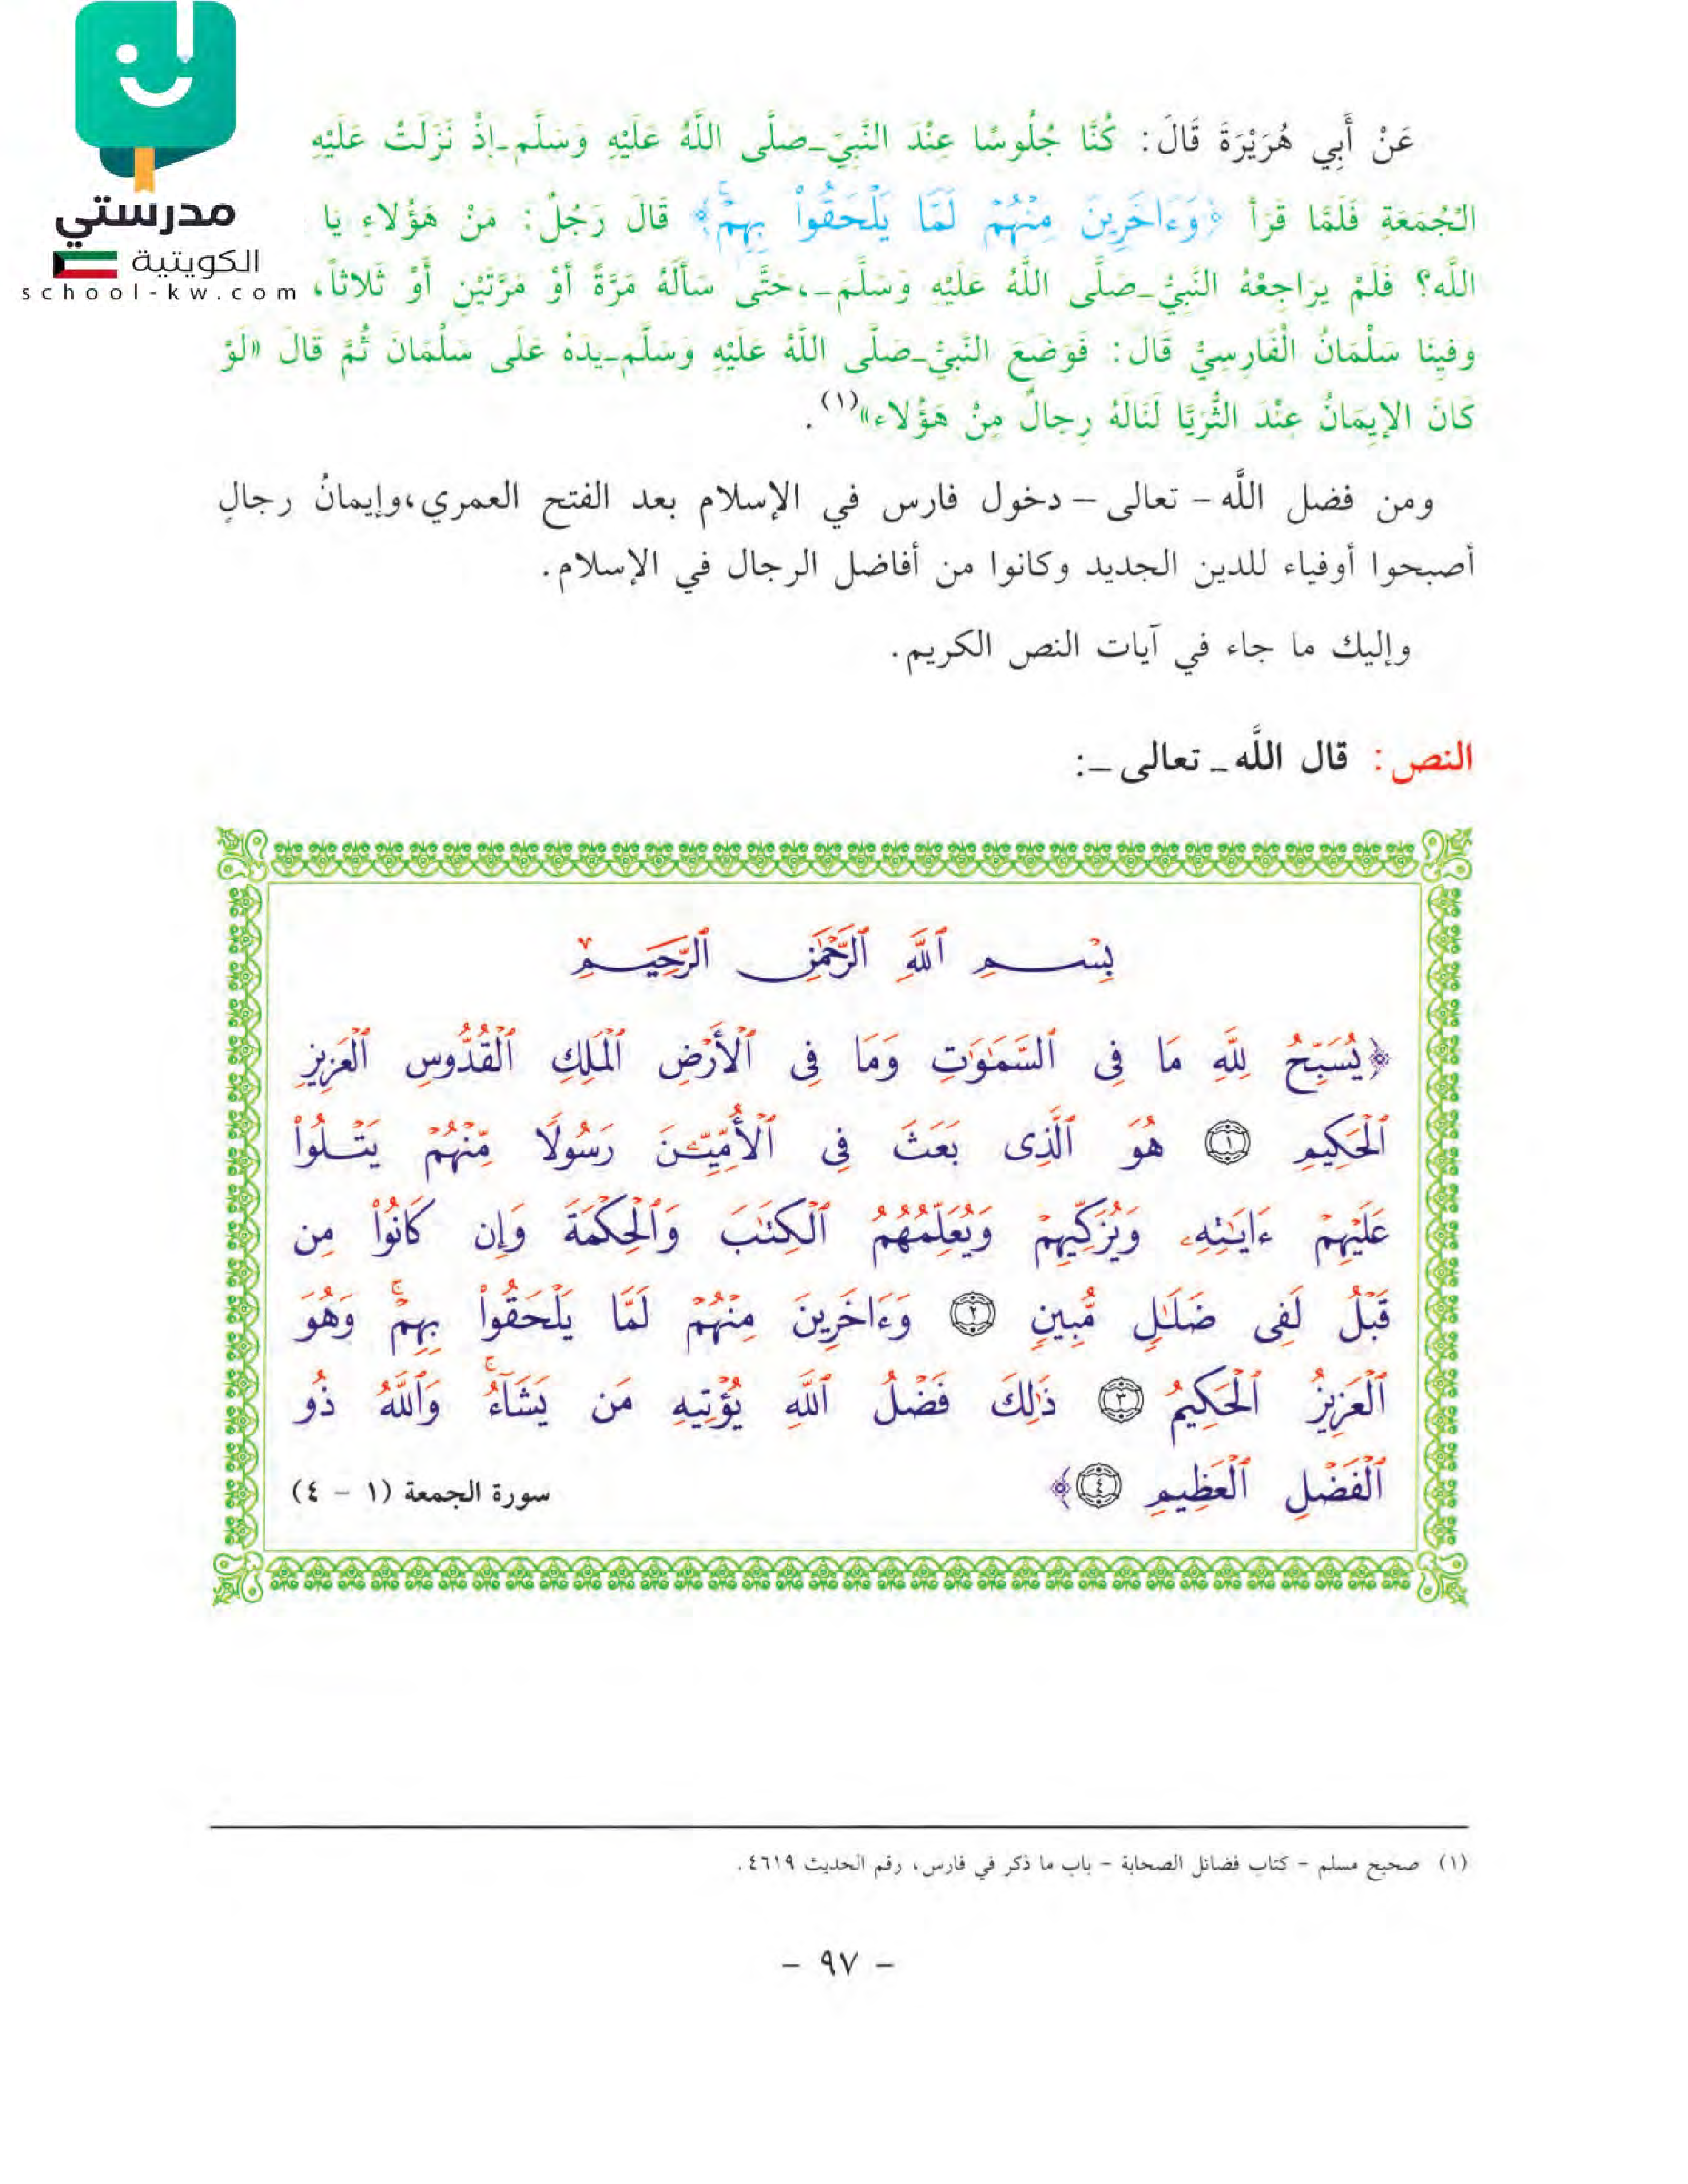 مدرستي
الكويتية
school-kw.com
عَنْ أَبِي هُرَيْرَةَ قَالَ: كُنَّا جُلُوسًا عِنْدَ النَّبِيِّ_صَلَّى اللَّهُ عَلَيْهِ وَسَلَّم_إِذْ نَزَلَتْ عَلَيْهِ
الجُمَعَةِ فَلَمَّا قَرَأَ ﴿وَءَاخَرِينَ مِنْهُمْ لَمَّا يَلْحَقُوا۟ بِهِمْ ۚ﴾ قَالَ رَجُلٌ: مَنْ هَؤُلاءِ يا
اللَّه؟ فَلَمْ يرَاجِعْهُ النَّبِيُّ_صَلَّى اللَّهُ عَلَيْهِ وَسَلَّمَ_،حَتَّى سَأَلَهُ مَرَّةً أَوْ مَرَّتَيْنِ أَوْ ثَلاثاً،
وفينا سَلْمَانُ الْفَارِسِيُّ قَالَ: فَوَضَعَ النَّبِيُّ_صَلَّى اللَّهُ عَلَيْهِ وَسَلَّم_يدَهُ عَلَى سَلْمَانَ ثُمَّ قَالَ «لَوْ
كَانَ الإِيمَانُ عِنْدَ الثُّرَيَّا لَنَالَهُ رِجالٌ مِنْ هَؤُلاء»(١).
ومن فضل اللَّه - تعالى - دخول فارس في الإسلام بعد الفتح العمري،وإيمانُ رجالٍ
أصبحوا أوفياء للدين الجديد وكانوا من أفاضل الرجال في الإسلام.
وإليك ما جاء في آيات النص الكريم.
النص: قال اللَّه_ تعالى_:
بِسْمِ ٱللَّهِ ٱلرَّحْمَٰنِ ٱلرَّحِيمِ
﴿يُسَبِّحُ لِلَّهِ مَا فِى ٱلسَّمَٰوَٰتِ وَمَا فِى ٱلْأَرْضِ ٱلْمَلِكِ ٱلْقُدُّوسِ ٱلْعَزِيزِ
ٱلْحَكِيمِ ١ هُوَ ٱلَّذِى بَعَثَ فِى ٱلْأُمِّيِّۦنَ رَسُولًا مِّنْهُمْ يَتْلُوا۟
عَلَيْهِمْ ءَايَٰتِهِۦ وَيُزَكِّيهِمْ وَيُعَلِّمُهُمُ ٱلْكِتَٰبَ وَٱلْحِكْمَةَ وَإِن كَانُوا۟ مِن
قَبْلُ لَفِى ضَلَٰلٍ مُّبِينٍ ٢ وَءَاخَرِينَ مِنْهُمْ لَمَّا يَلْحَقُوا۟ بِهِمْ ۚ وَهُوَ
ٱلْعَزِيزُ ٱلْحَكِيمُ ٣ ذَٰلِكَ فَضْلُ ٱللَّهِ يُؤْتِيهِ مَن يَشَآءُ ۚ وَٱللَّهُ ذُو
ٱلْفَضْلِ ٱلْعَظِيمِ ٤﴾ سورة الجمعة (١ - ٤)
(١) صحيح مسلم - كتاب فضائل الصحابة - باب ما ذكر في فارس، رقم الحديث ٤٦١٩.
- ٩٧ -